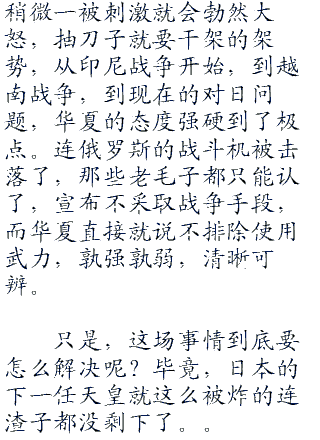 稍微一被刺激就会勃然大
怒，抽刀子就要干架的架
势，从印尼战争开始，到越
南战争，到现在的对日问
题，华夏的态度强硬到了极
点。连俄罗斯的战斗机被击
落了，那些老毛子都只能认
了，宣布不采取战争手段，
而华夏直接就说不排除使用
武力，孰强孰弱，清晰可
辨。
只是，这场事情到底要
怎么解决呢？毕竟，日本的
下一任天皇就这么被炸的连
渣子都没剩下了。。